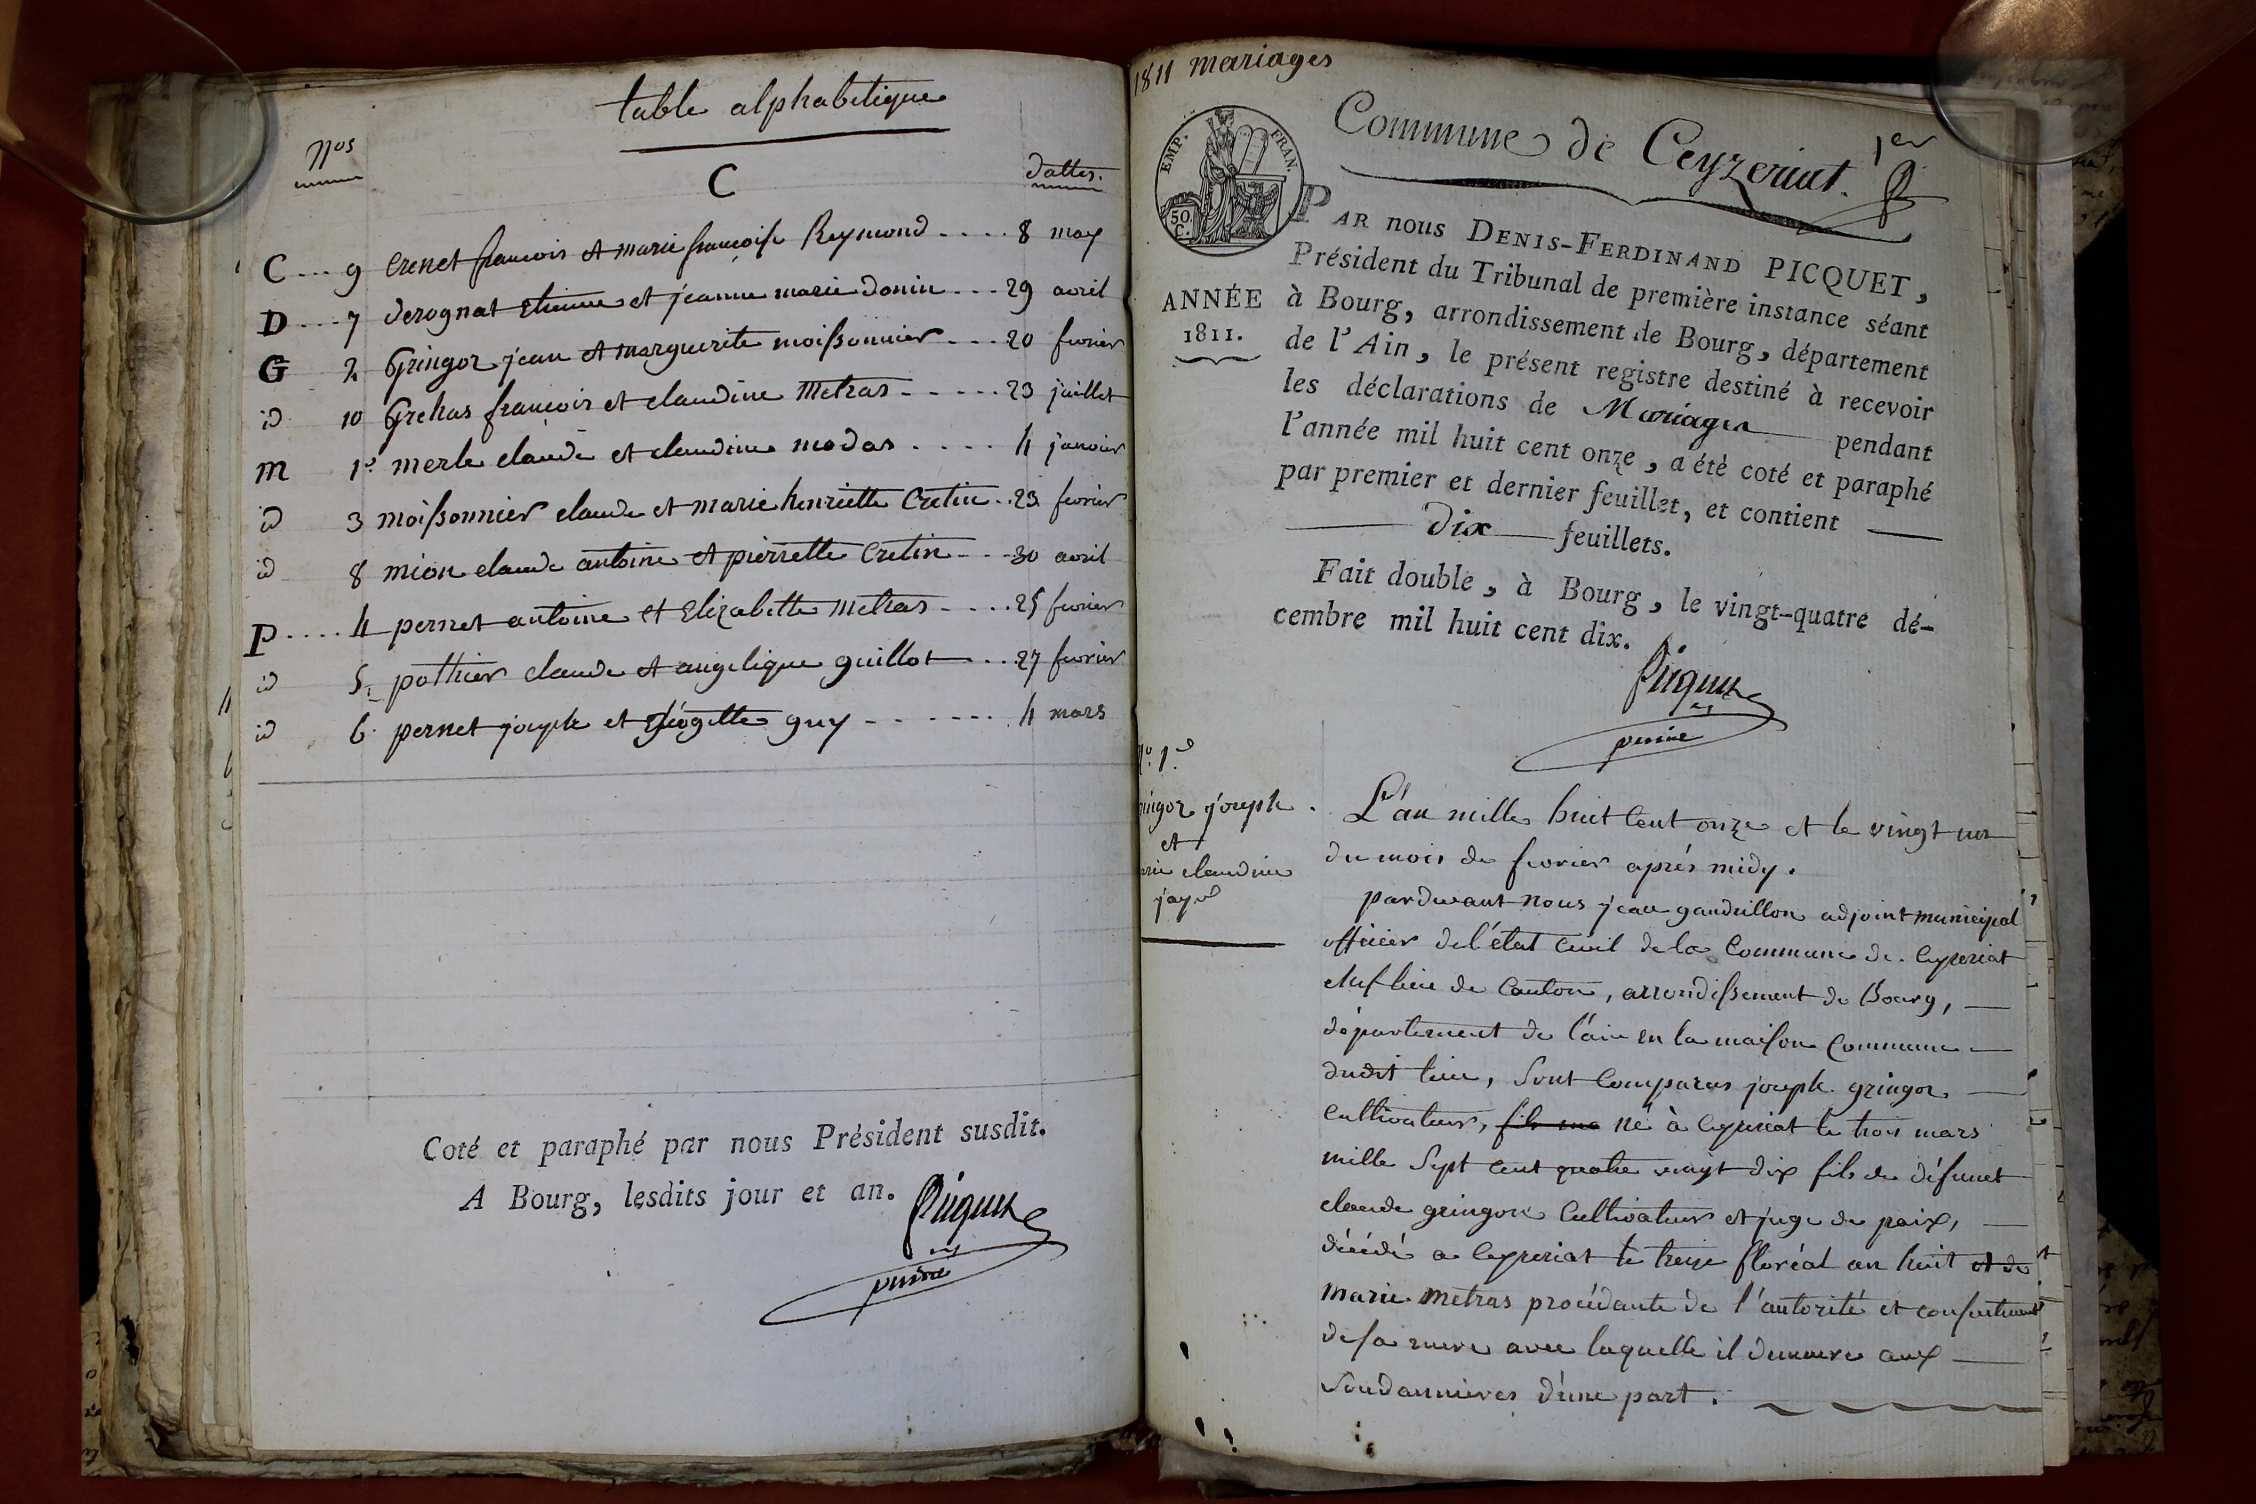 table alphabetique
Nos
C
dattes.
C ... 9 Crenet francois et marie francoise Reymond .... 8 may
D ... 7 derognat etienne et jeanne marie donin ... 29 avril
G 2 Gringoz jean et marguerite moissonnier ... 20 fevrier
id 10 Grehas francois et claudine Metras ..... 23 juillet
m 1er merle claude et claudine modas .... 4 janvier
id 3 moissonnier claude et marie henriette Cretin .. 23 fevrier
id 8 mion claude antoine et pierrette Cretin ... 30 avril
P .... 4 pernet antoine et Elizabette Metras .... 25 fevrier
id 5 pothier claude et angelique guillot ... 27 fevrier
id 6 pernet joseph et guy ....... 4 mars
Coté et paraphé par nous Président susdit.
A Bourg, lesdits jour et an.
Picquet
1811 mariages
Commune de Ceyzeriat.
1er
EMP. FRAN.
50. C.
PAR nous DENIS-FERDINAND PICQUET,
Président du Tribunal de première instance séant
ANNÉE
1811.
à Bourg, arrondissement de Bourg, département
de l'Ain, le présent registre destiné à recevoir
les déclarations de Mariages pendant
l'année mil huit cent onze, a été coté et paraphé
par premier et dernier feuillet, et contient
dix feuillets.
Fait double, à Bourg, le vingt-quatre dé-
cembre mil huit cent dix.
Picquet
No. 1er
joseph
et
claudine
L'an mille huit cent onze et le vingt un
du mois de fevrier aprés midy.
pardevant nous jean gandrillon adjoint municipal
officier de l'état civil de la Commune de Ceyzeriat
chef lieu de Canton, arrondissement de Bourg,
département de l'ain en la maison Commune
dudit lieu, sont Comparus joseph gringoz
Cultivateur, né à Ceyzeriat le trois mars
mille sept cent quatre vingt dix fils de défunct
claude gringoz Cultivateur et juge de paix,
décédé a Ceyzeriat le treize floréal an huit et de
marie metras procédante de l'autorité et consentement
de sa mere avec laquelle il demeure aux
Soudannieres d'une part.